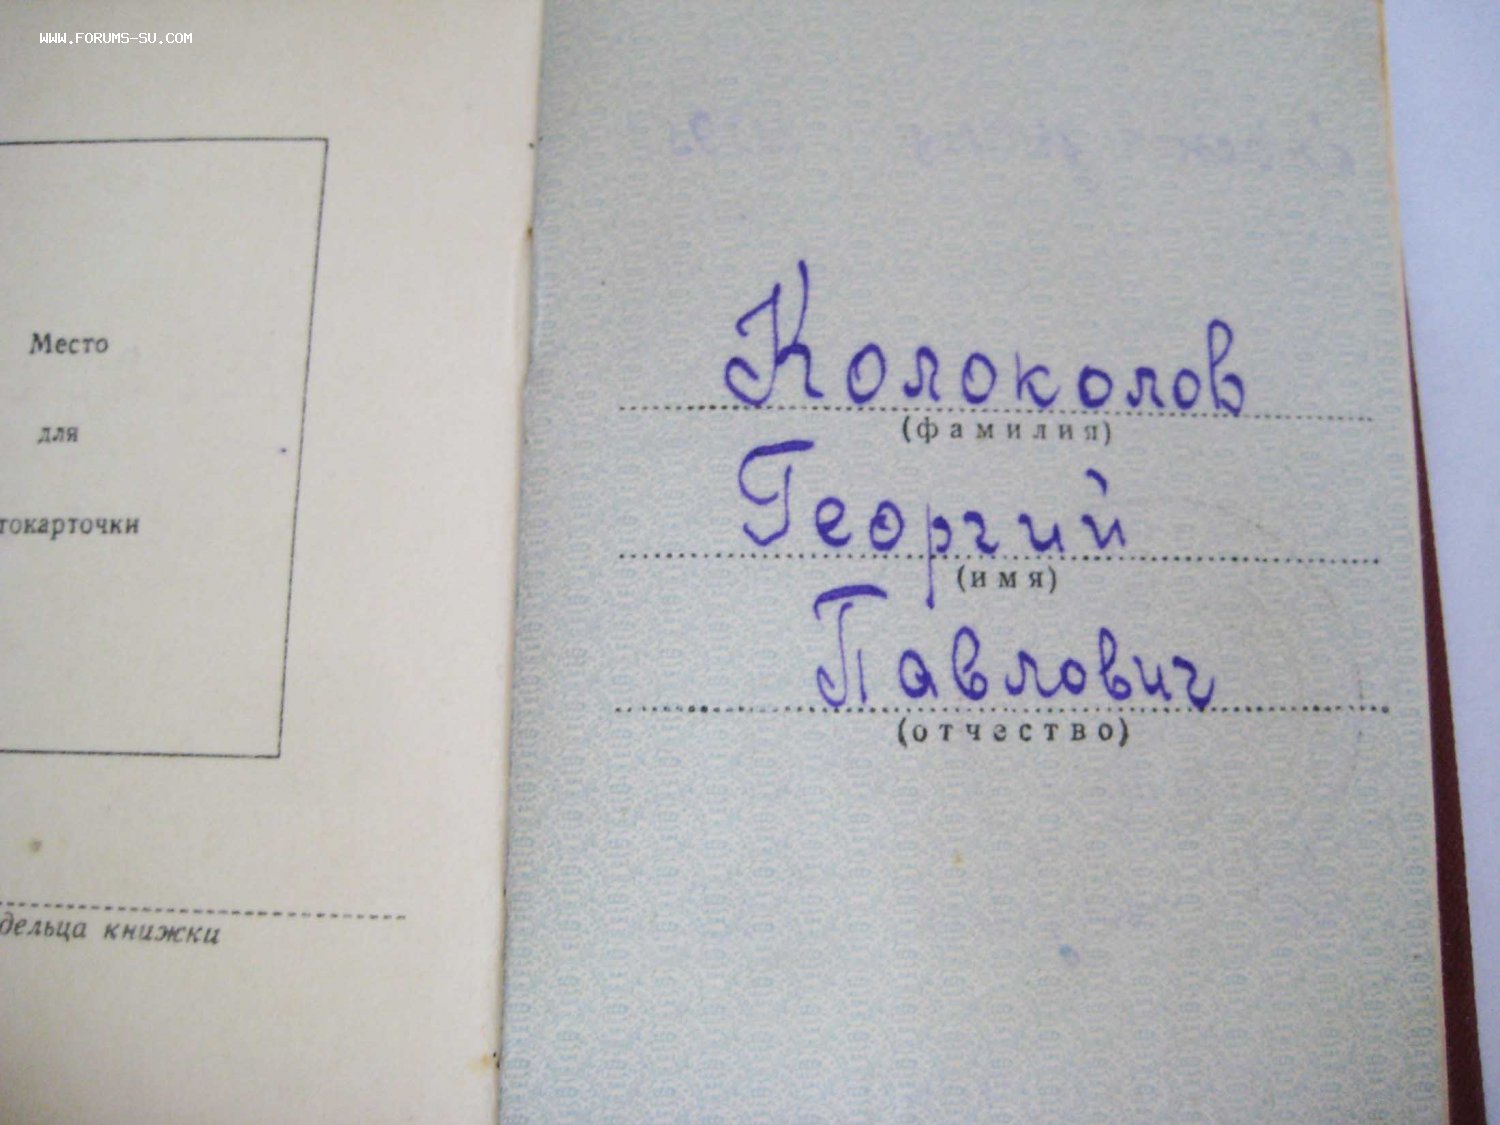 WWW.FORUMS-SU.COM
Место
для
токарточки
дельца книжки
Колоколов
(фамилия)
Георгий
(имя)
Павлович
(отчество)